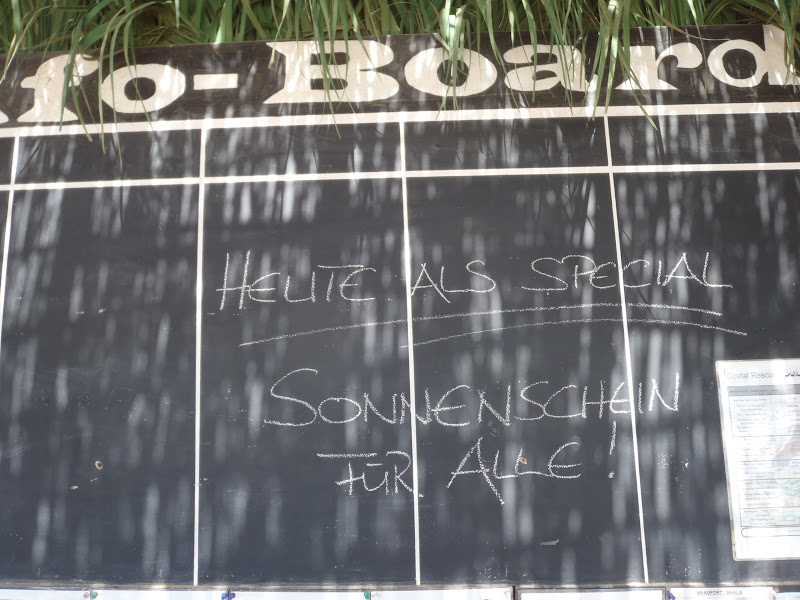 nfo-Board
HEUTE ALS SPECIAL
SONNENSCHEIN
FÜR ALLE!
Costal Rescue
BEAUFORT - SKALA